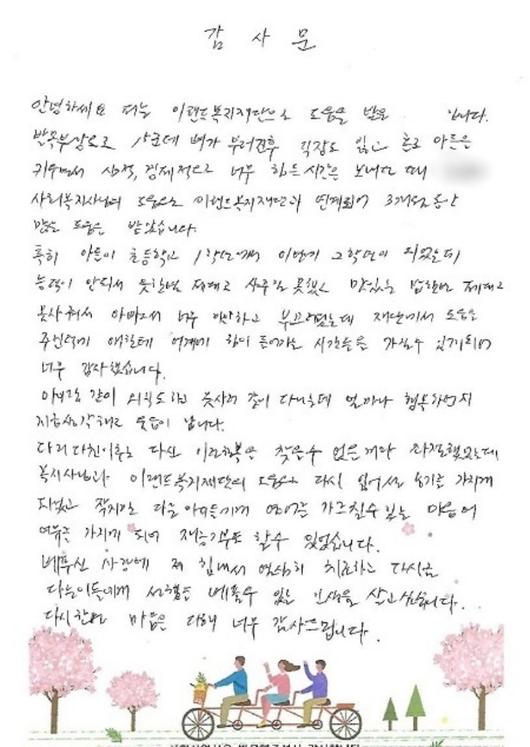 감 사 문
안녕하세요 저는 이랜드복지재단으로 도움을 받은 입니다.
발목부상으로 1군데 뼈가 부러진후 직장도 잃고 혼로 아들은
키우면서 심적, 경제적으로 너무 힘든 시간을 보내던 때
사회복지사님의 도움으로 이랜드복지재단과 연계되어 3개월동안
많은 도움을 받았습니다.
특히 아들이 초등학교 1학년에서 이번에 2학년이 되었는데
능력이 안되서 옷한벌 제대로 사주질 못했고 맛있는 밥한번 제대로
못사줘서 아빠로서 너무 미안하고 부끄러웠는데 재단에서 도움을
주신덕에 애한테 어깨에 힘이 들어가는 시간들을 가질수 있게되어
너무 감사했습니다.
아들과 같이 외식도하고 옷사러 같이 다니는데 얼마나 행복하던지
지금생각해도 눈물이 납니다.
다리다친이후로 다신 이런행복은 찾을수 없을거라 좌절했었는데
복지사님과 이랜드복지재단의 도움으로 다시 일어서는 용기를 가지게
되었고 작지만 다른 아이들에게 연어를 가르칠수 있는 마음에
여유를 가지게 되어 재능기부도 할수 있었습니다.
베푸신 사랑에 저 힘내서 열심히 치료하고 다시금
다른이들에게 선행을 베풀수 있는 인생을 살고싶습니다.
다시한번 마음을 다해 너무 감사드립니다.